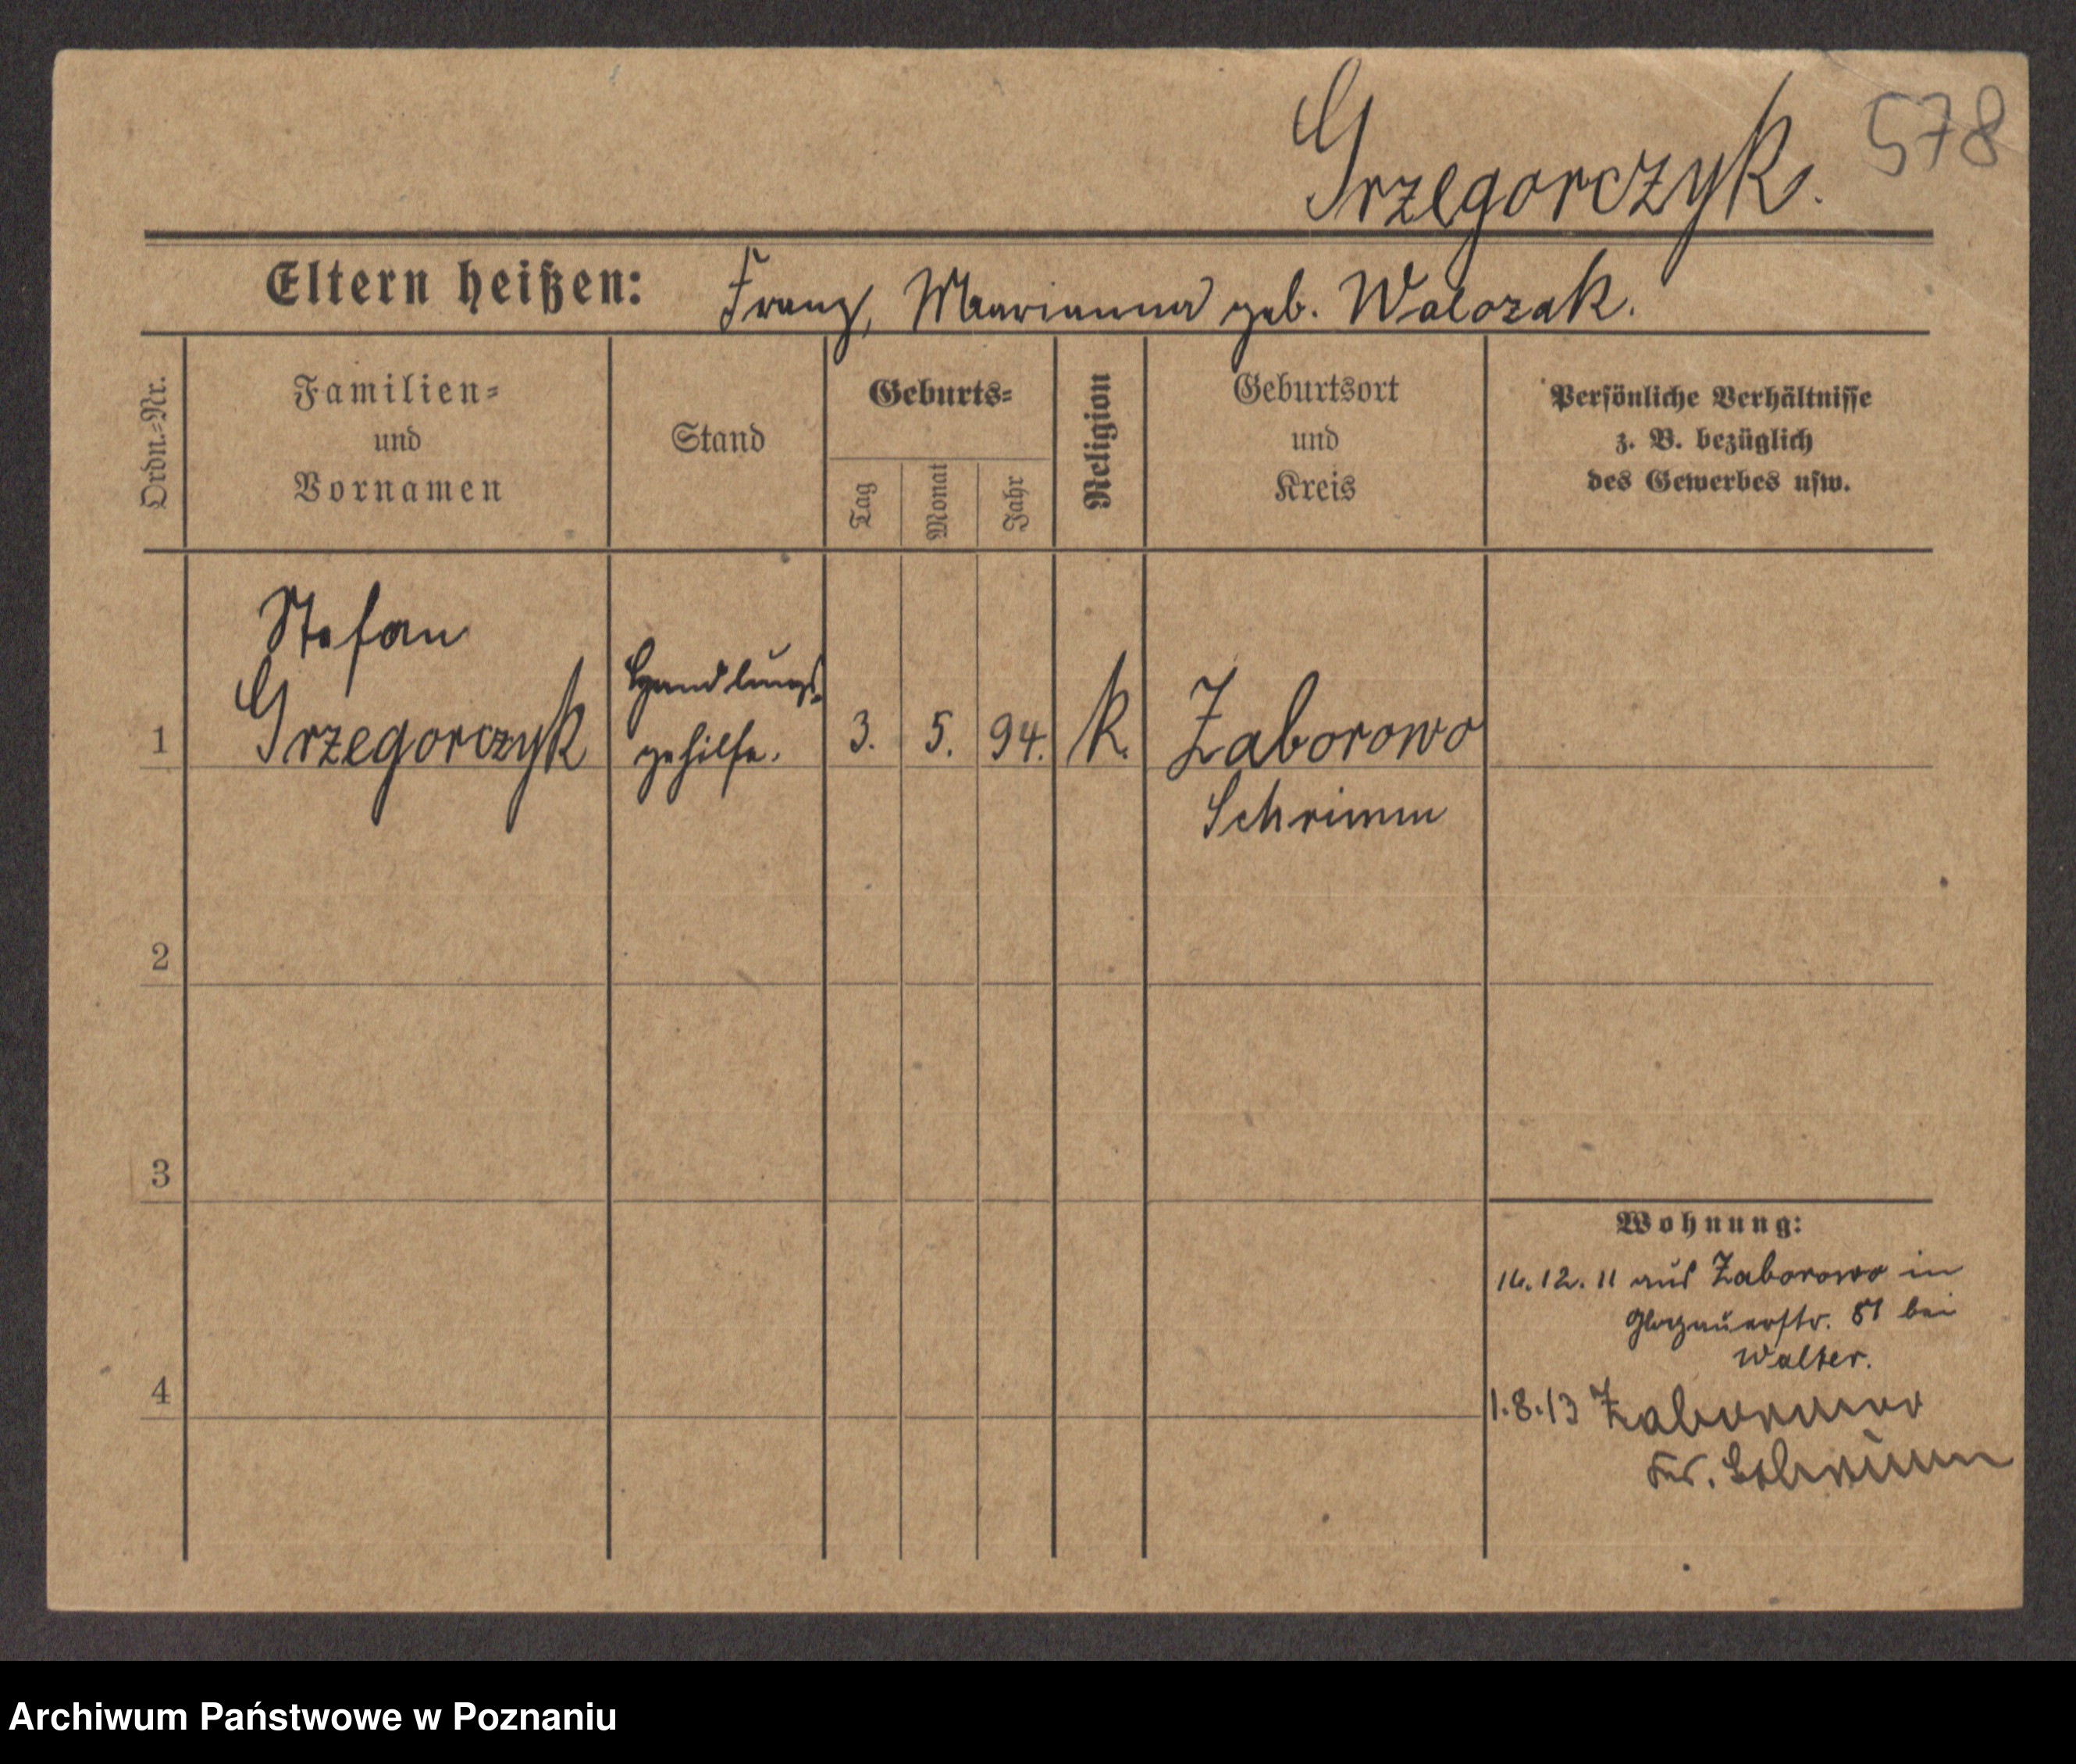 Grzegorczyk. 578
Eltern heißen: Franz, Marianna geb. Walczak.
Ordn.-Nr.
Familien-
und
Vornamen
Stand
Geburts-
Tag
Monat
Jahr
Religion
Geburtsort
und
Kreis
Persönliche Verhältnisse
z. B. bezüglich
des Gewerbes usw.
Stefan
Handlungs-
1 Grzegorczyk gehilfe. 3. 5. 94. K. Zaborowo
Schrimm
2
3
Wohnung:
12. 11 aus Zaborowo in
Glogauerstr. 51 bei
Walter.
4
1.8.13 Zaborowo
Kr. Schrimm
Archiwum Państwowe w Poznaniu